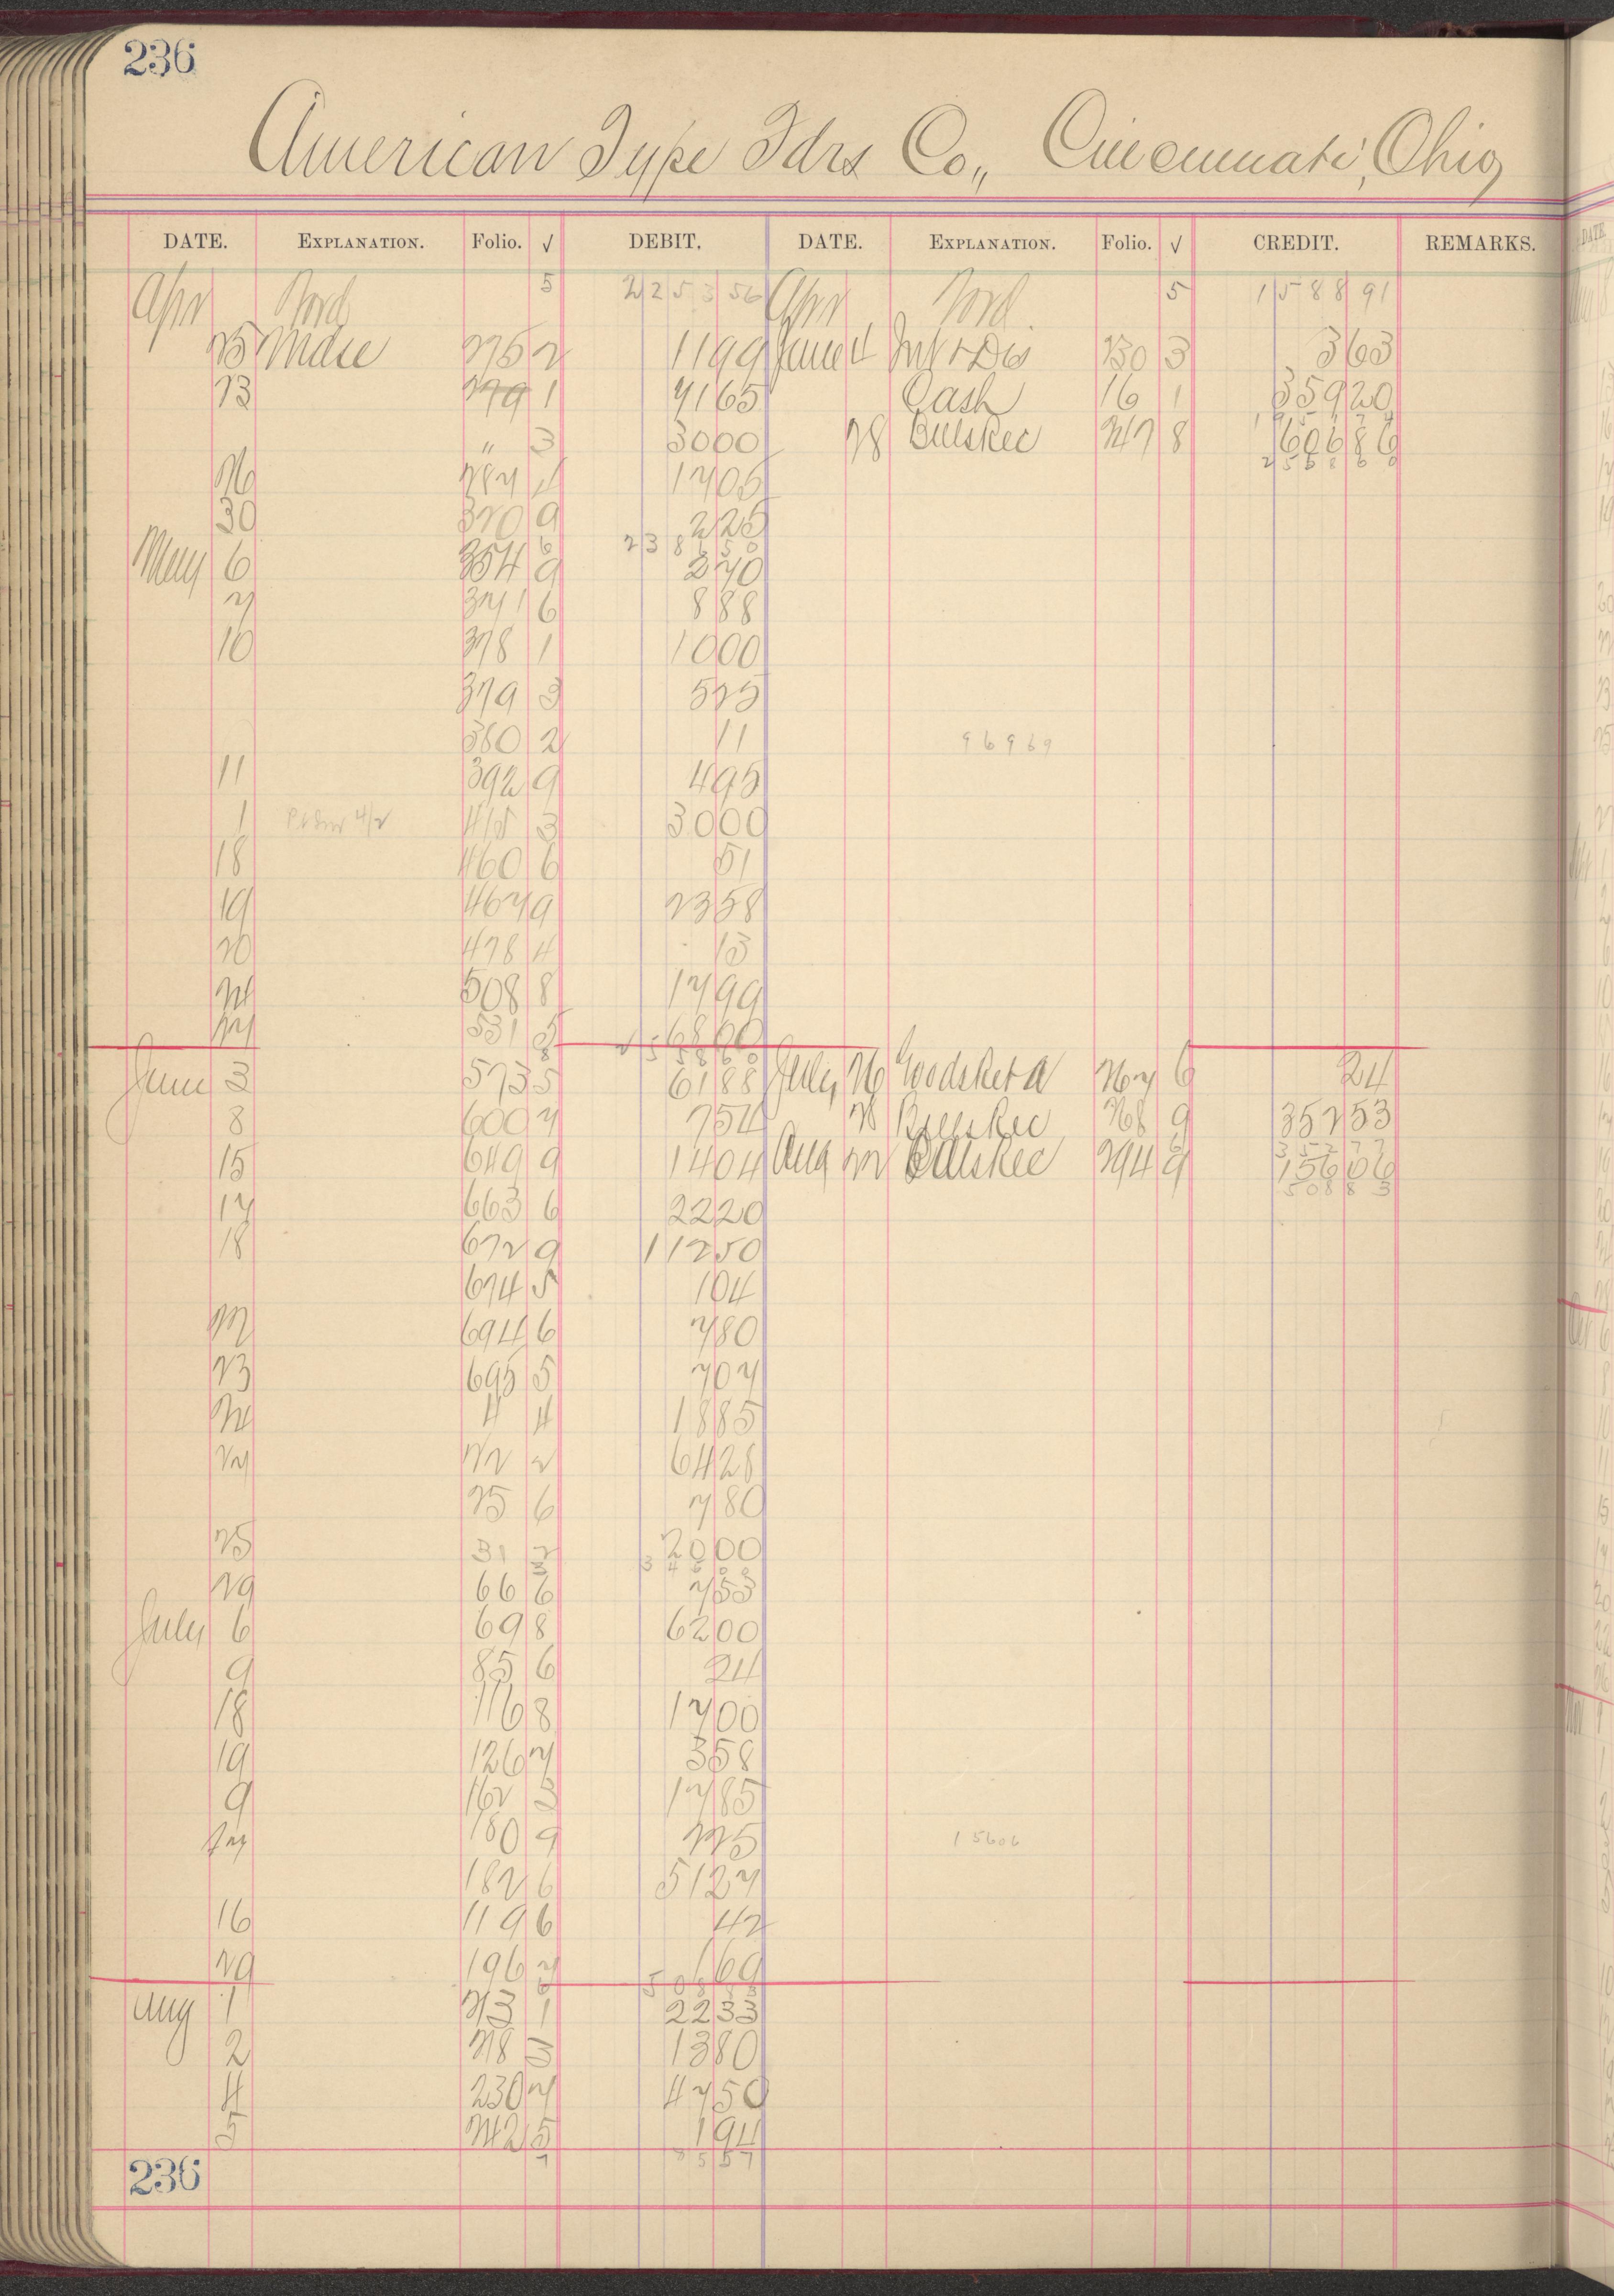 236
American Type Fdrs Co., Cincinnati, Ohio
DATE. EXPLANATION. Folio. √ DEBIT. DATE. EXPLANATION. Folio. √ CREDIT. REMARKS.
Apr Ford 5 2253 56 Apr Ford 5 1588 91
25 Mdse 275 2 11 99 June 4 Int & Dis 230 3 3 63
23 1 41 65 Cash 16 1 359 20
" 3 30 00 28 247 8 606 86
26 17 05
30 320 9 2 25
May 6 354 9 2 70
7 371 6 8 88
10 378 1 10 00
379 3 5 25
380 2 11
96969
11 392 9 4 95
1 415 3 30 00
18 460 6 51
19 467 9 23 58
20 478 4 13
24 508 8 17 99
27 531
June 3 573 5 61 88 July 26 Goods Retd 6 24
8 600 7 7 54 28 268 9 352 53
15 649 9 14 04 Aug 22 294 156 06
17 663 6 22 20
18 672 9 112 50
674 5 1 04
22 694 6 7 80
23 695 5 7 07
24 4 4 18 85
27 22 2 64 28
25 6 7 80
25 31 2 20 00
29 66 6 7 53
July 6 69 8 62 00
9 85 6 24
18 116 8 17 00
19 126 7 3 58
9 162 3 17 85
27 180 9 2 25
15606
182 6 51 27
16 119 6 42
29 196 7 1 69
Aug 1 213 1 22 33
2 218 3 13 80
4 230 7 47 50
5 242 5 1 94
236